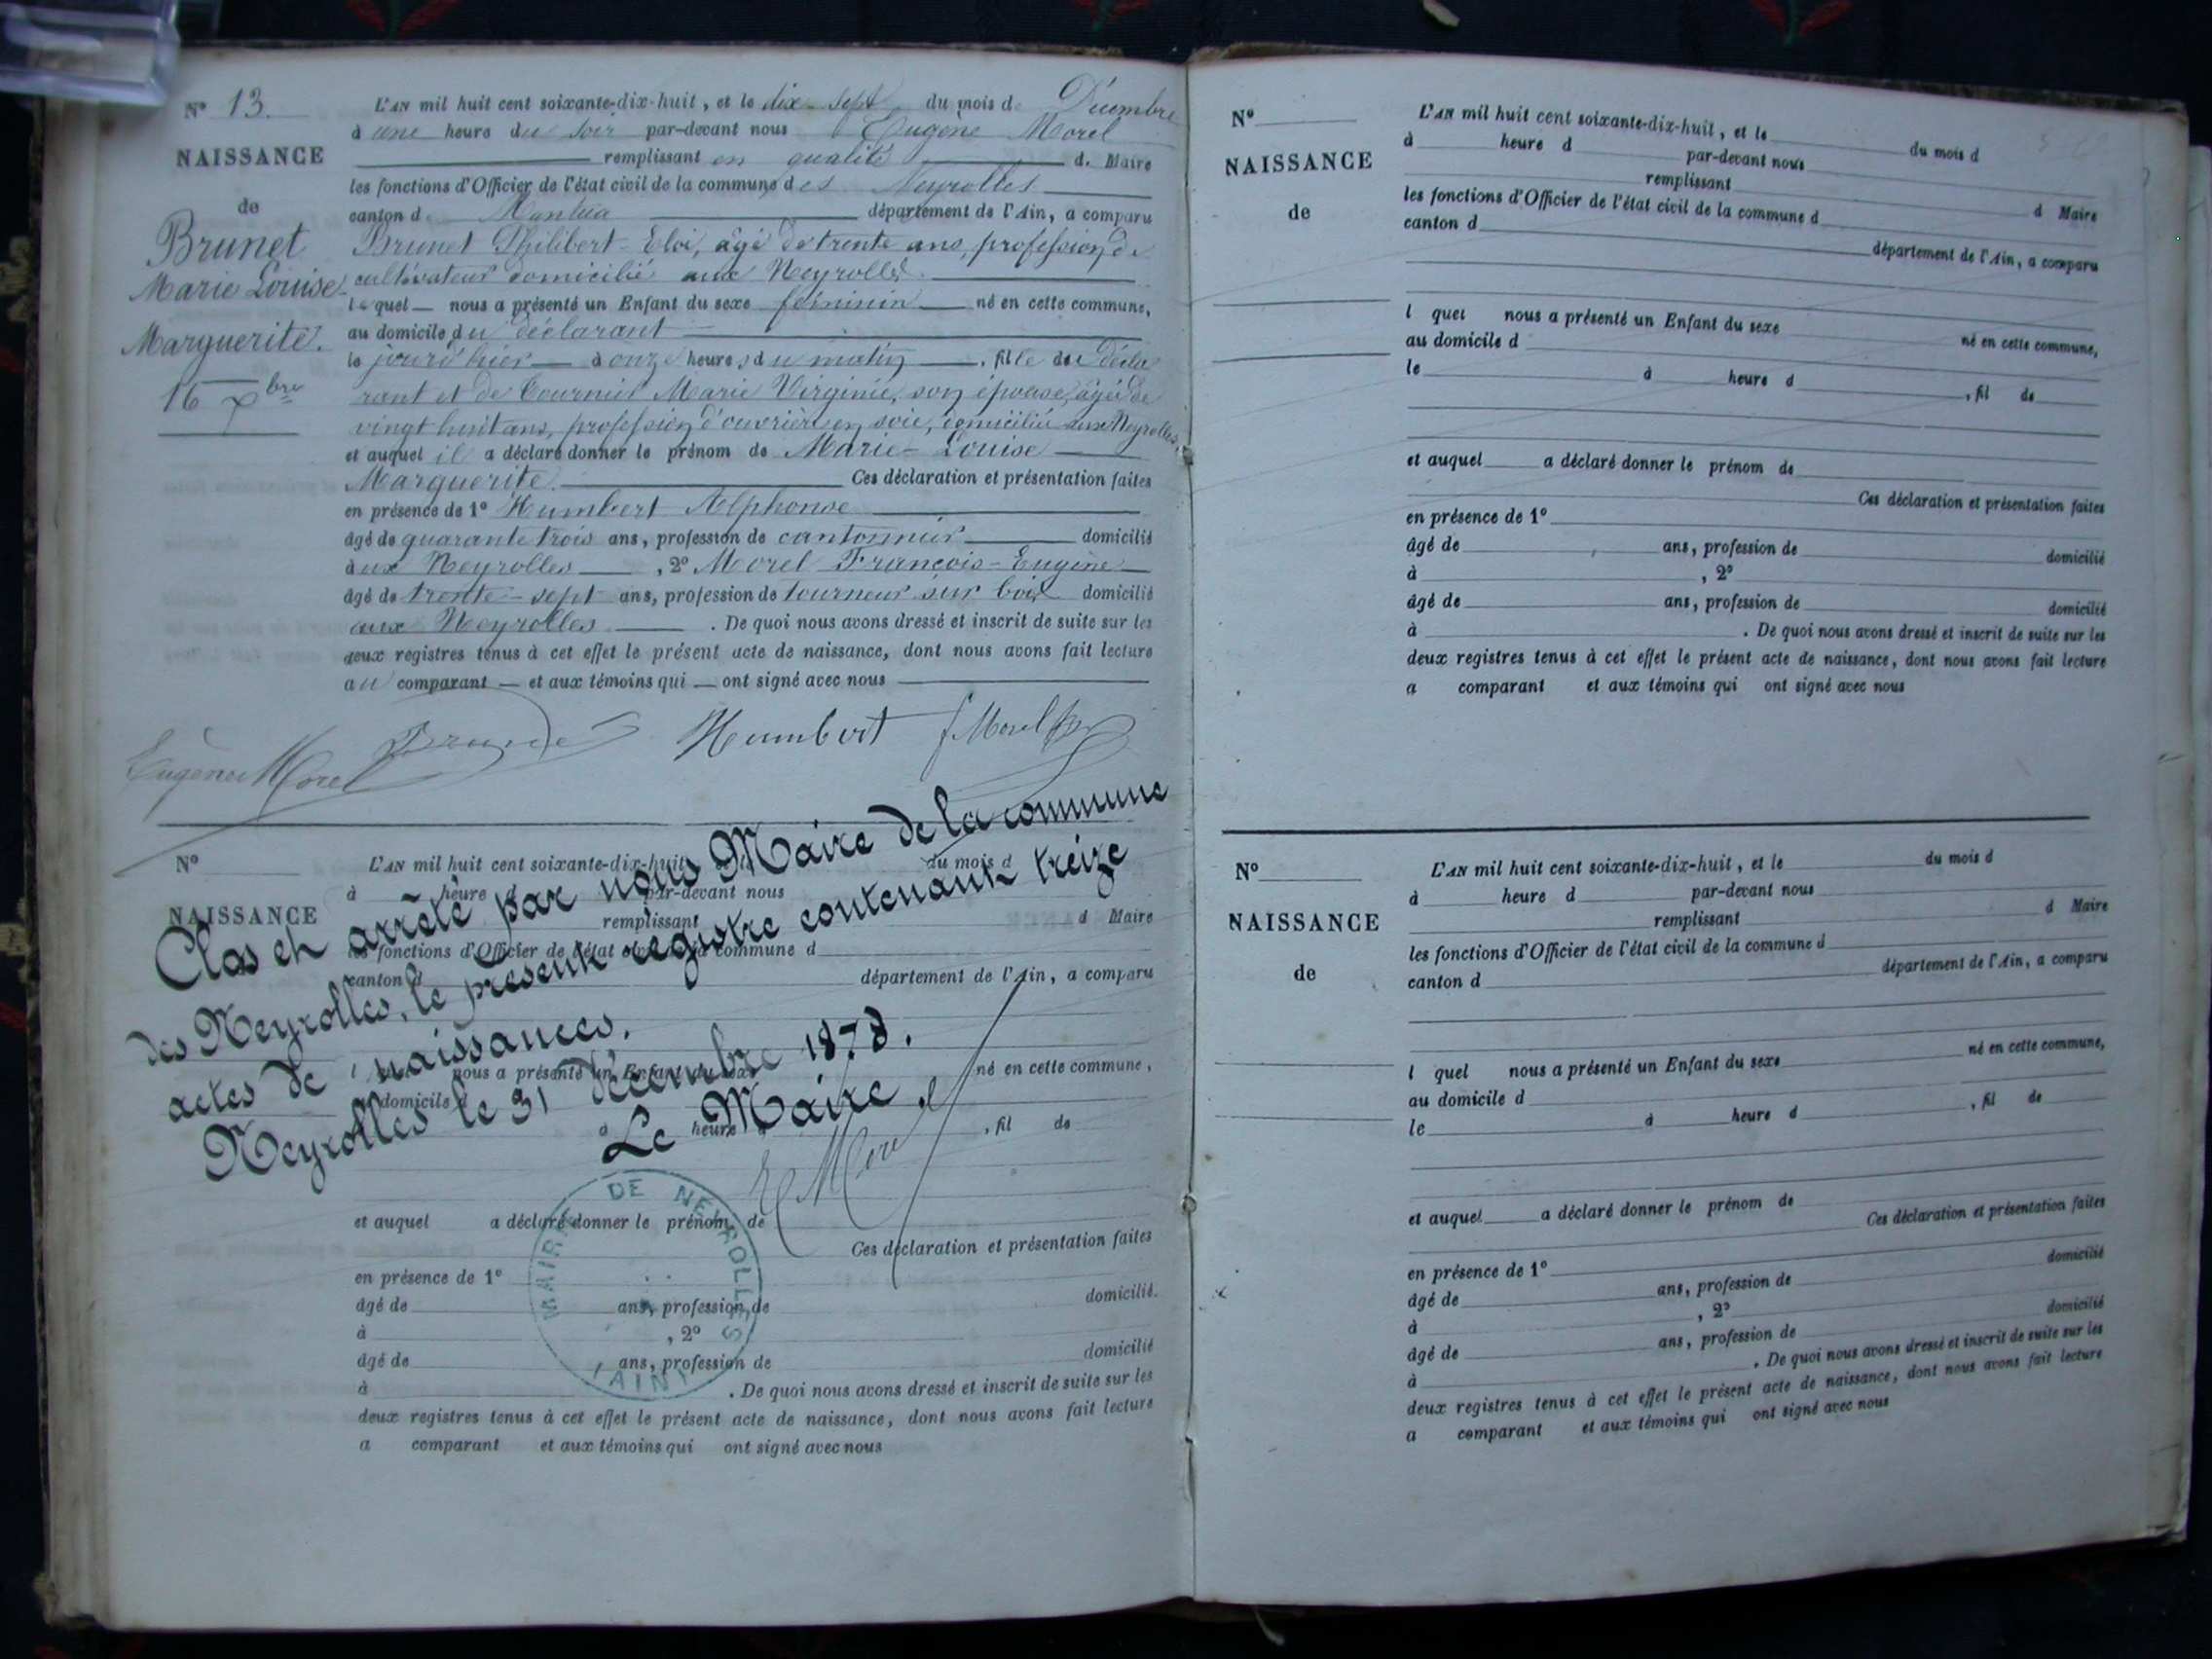 N° 13.
NAISSANCE
de
Brunet
Marie Louise
Marguerite.
16 Xbre
L'AN mil huit cent soixante-dix-huit, et le dix-sept du mois de Décembre
à une heure du soir par-devant nous Eugène Morel
remplissant en qualité de Maire
les fonctions d'Officier de l'état civil de la commune des Neyrolles
canton de Nantua département de l'Ain, a comparu
Brunet Philibert-Eloi, âgé de trente ans, profession de
cultivateur domicilié aux Neyrolles.
lequel nous a présenté un Enfant du sexe féminin né en cette commune,
au domicile du déclarant
le jourd'hier à onze heures du matin, fille du décla
rant et de Marie Virginie, son épouse, âgée de
vingt huit ans, profession d'ouvrière en soie, domiciliée aux Neyrolles,
et auquel il a déclaré donner le prénom de Marie-Louise
Marguerite. Ces déclaration et présentation faites
en présence de 1° Humbert Alphonse
âgé de quarante trois ans, profession de cantonnier domicilié
aux Neyrolles, 2° Morel François-Eugène
âgé de trente-sept ans, profession de tourneur sur bois domicilié
aux Neyrolles. De quoi nous avons dressé et inscrit de suite sur les
deux registres tenus à cet effet le présent acte de naissance, dont nous avons fait lecture
au comparant et aux témoins qui ont signé avec nous
Eugène Morel Brunet Humbert f. Morel
N°
NAISSANCE
L'AN mil huit cent soixante-dix-huit du mois d
à heure d par-devant nous
remplissant d Maire
les fonctions d'Officier de l'état civil de la commune d
canton d département de l'Ain, a comparu
nous a présenté un Enfant du sexe né en cette commune,
domicile d
à heure d, fil de
et auquel a déclaré donner le prénom de
Ces déclaration et présentation faites
en présence de 1°
âgé de ans, profession de domicilié
à , 2°
âgé de ans, profession de domicilié
à . De quoi nous avons dressé et inscrit de suite sur les
deux registres tenus à cet effet le présent acte de naissance, dont nous avons fait lecture
a comparant et aux témoins qui ont signé avec nous
Clos et arrêté par nous Maire de la commune
des Neyrolles, le présent registre contenant treize
actes de naissances.
Neyrolles le 31 décembre 1878.
Le Maire,
E Morel
MAIRIE DE NEYROLLES
(AIN)
N°
NAISSANCE
de
L'AN mil huit cent soixante-dix-huit, et le du mois d
à heure d par-devant nous
remplissant d Maire
les fonctions d'Officier de l'état civil de la commune d
canton d département de l'Ain, a comparu
l quel nous a présenté un Enfant du sexe né en cette commune,
au domicile d
le à heure d , fil de
et auquel a déclaré donner le prénom de
Ces déclaration et présentation faites
en présence de 1°
âgé de ans, profession de domicilié
à , 2°
âgé de ans, profession de domicilié
à . De quoi nous avons dressé et inscrit de suite sur les
deux registres tenus à cet effet le présent acte de naissance, dont nous avons fait lecture
a comparant et aux témoins qui ont signé avec nous
N°
NAISSANCE
de
L'AN mil huit cent soixante-dix-huit, et le du mois d
à heure d par-devant nous
remplissant d Maire
les fonctions d'Officier de l'état civil de la commune d
canton d département de l'Ain, a comparu
l quel nous a présenté un Enfant du sexe né en cette commune,
au domicile d
le à heure d , fil de
et auquel a déclaré donner le prénom de
Ces déclaration et présentation faites
en présence de 1°
âgé de ans, profession de domicilié
à , 2°
âgé de ans, profession de domicilié
à . De quoi nous avons dressé et inscrit de suite sur les
deux registres tenus à cet effet le présent acte de naissance, dont nous avons fait lecture
a comparant et aux témoins qui ont signé avec nous